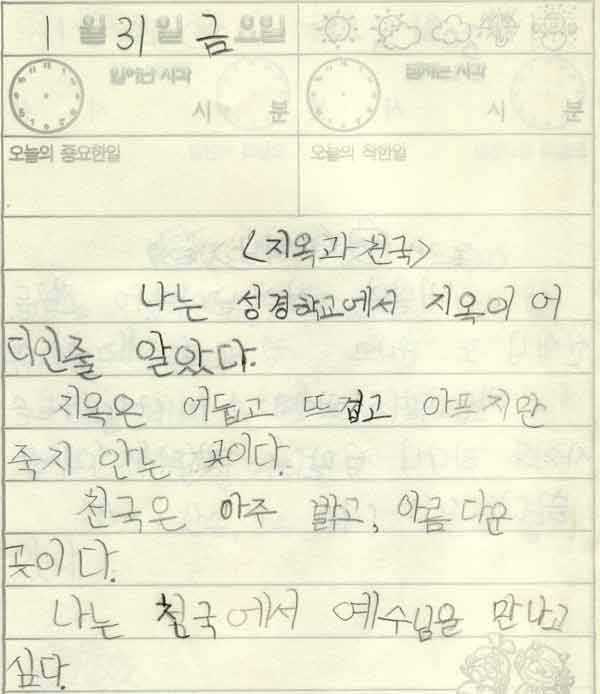 1 월 31 일 금 요일
일어난 시각 잠자는 시각
시 분 시 분
오늘의 중요한일 오늘의 착한일
<지옥과 천국>
나는 성경학교에서 지옥이 어
디인줄 알았다.
지옥은 어둡고 뜨겁고 아프지만
죽지 안는 곳이다.
천국은 아주 밝고, 아름다운
곳이다.
나는 천국에서 예수님을 만나고
싶다.